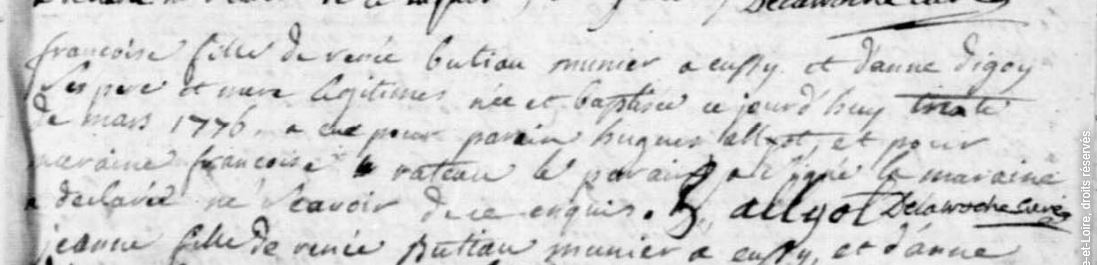 Delaroche curé
françoise fille de renée butiau munier a cussy et d'anne digoy
ses pere et mere legitimes née et baptisée ce jourd'huy trente
de mars 1776. a eue pour parain hugues allyot et pour
maraine françoise rateau le parain a signé la maraine
a declarée ne scavoir de ce enquis. h. allyot Delaroche curé
jeanne fille de renée butiau munier a cussy, et d'anne
e-et-Loire, droits réservés